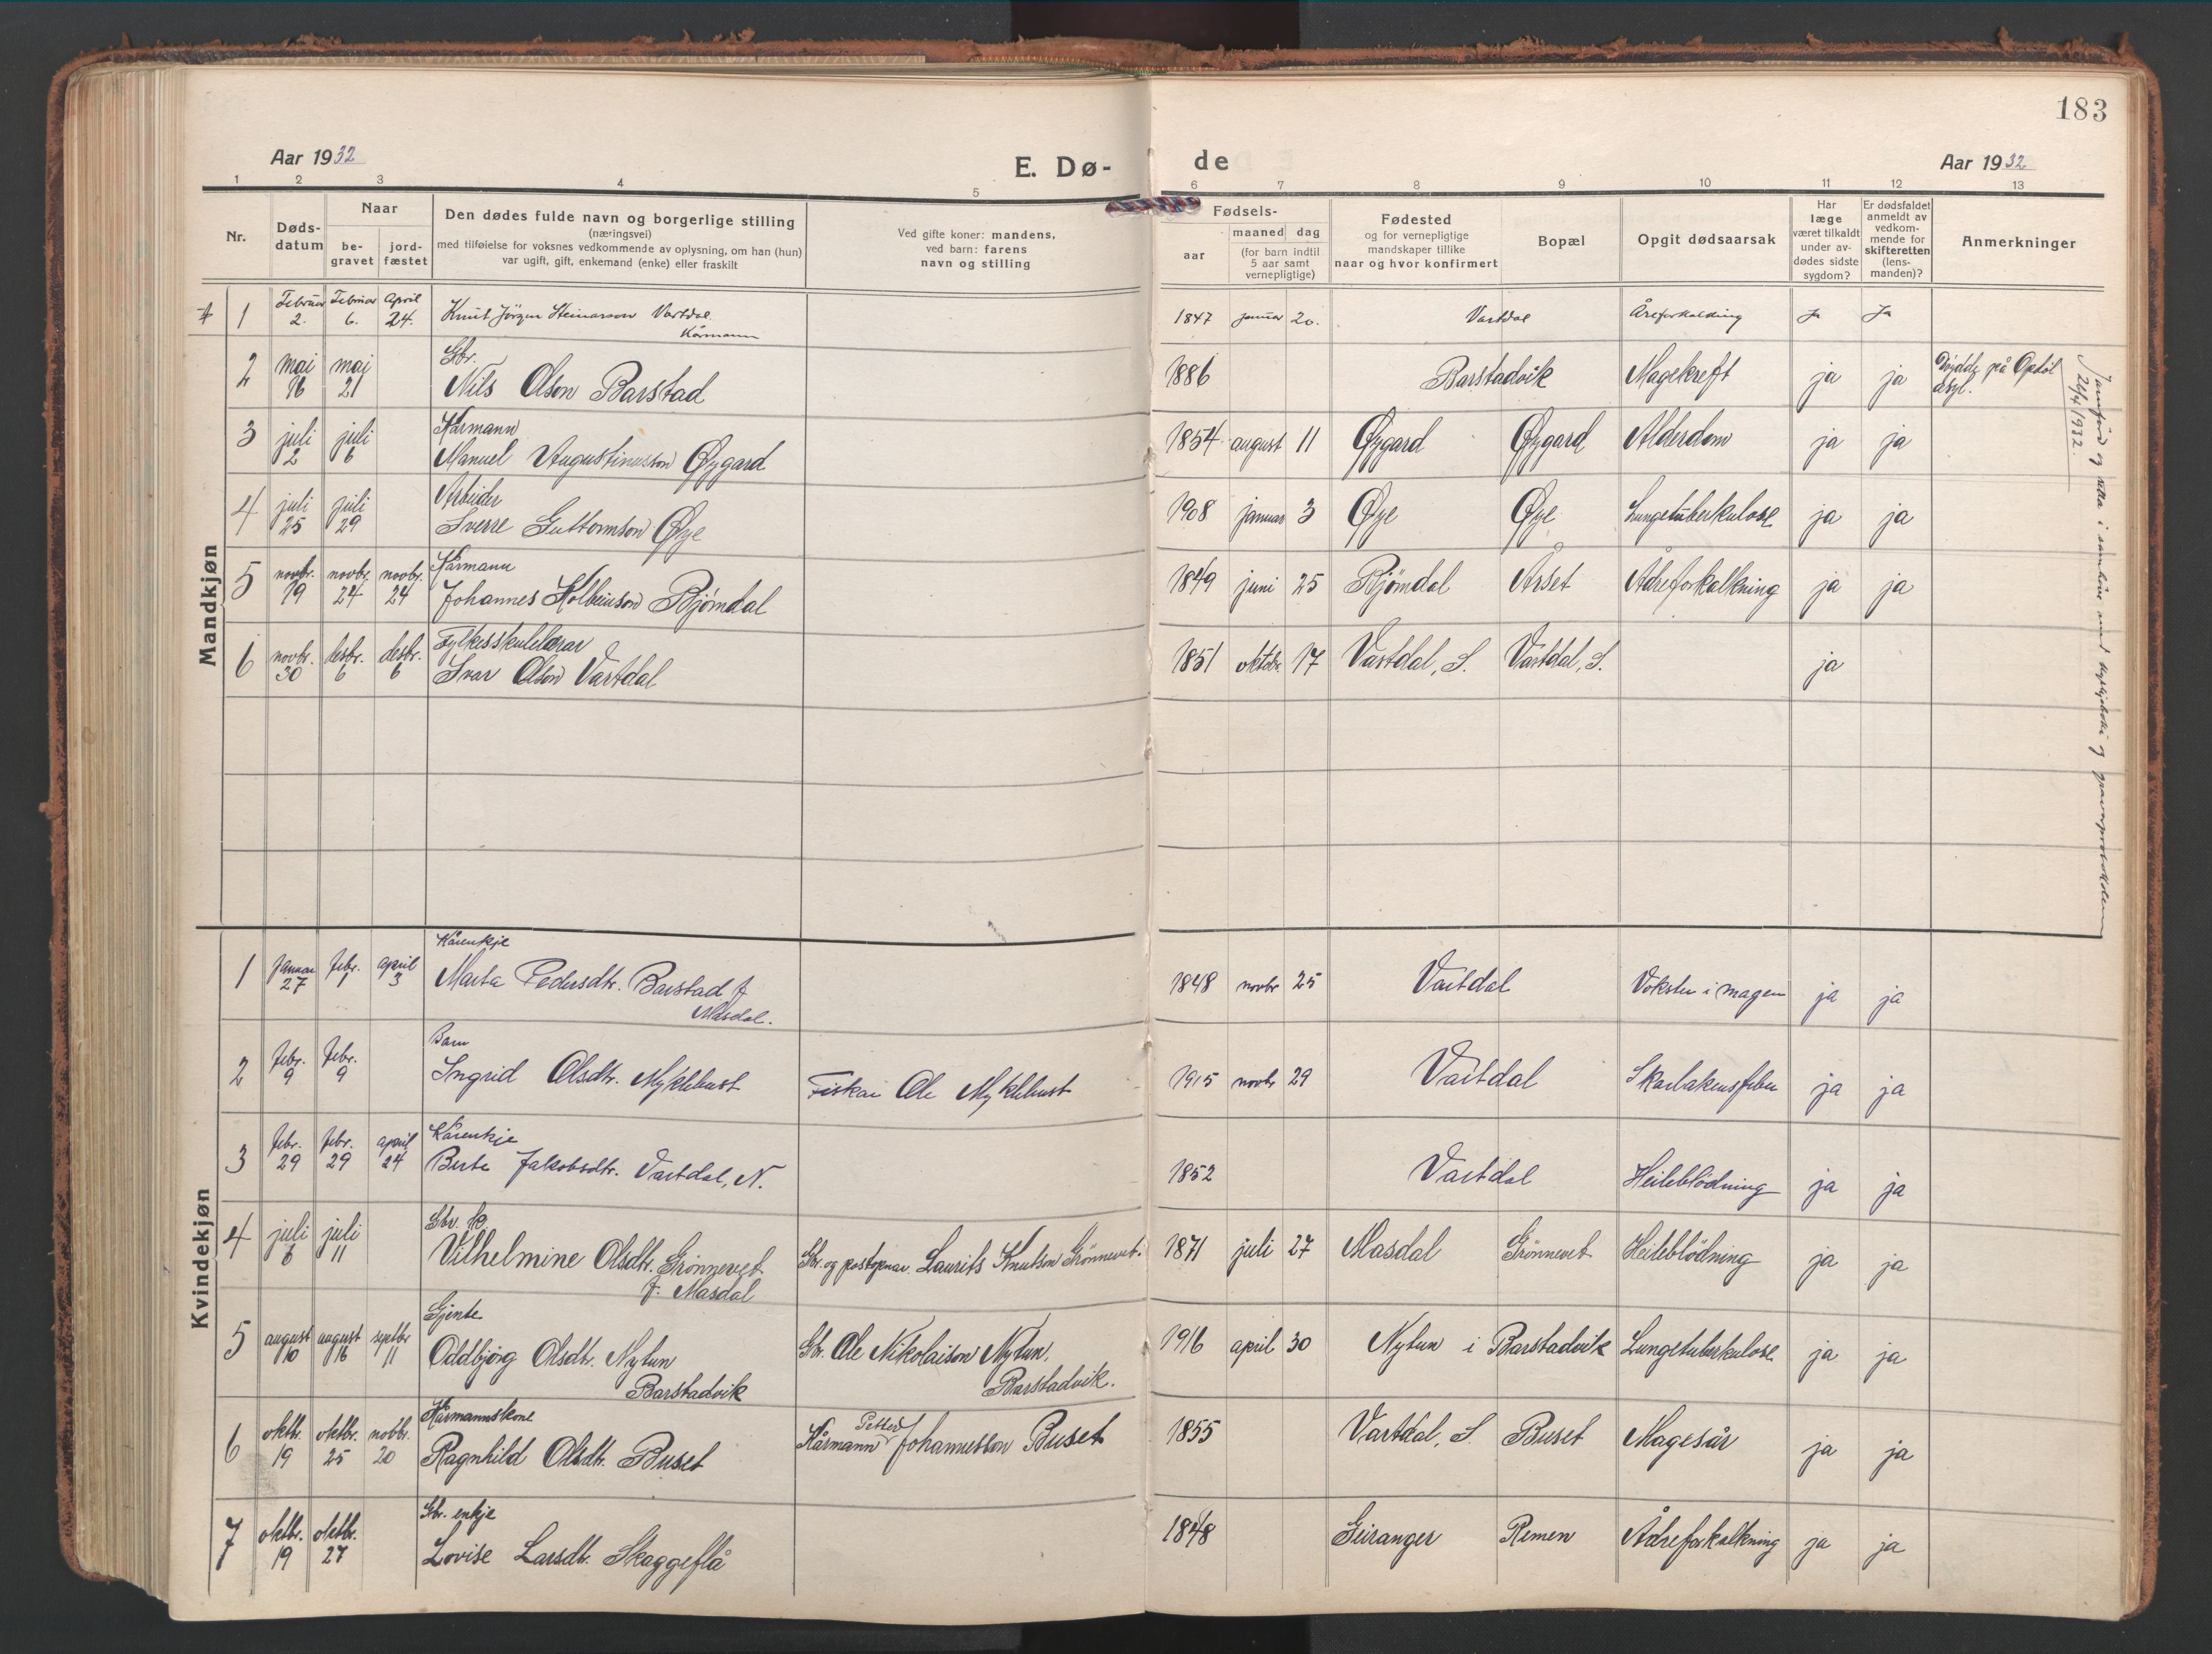 183
Aar 1932
E. Dø-
de
Aar 1932
1 2 3 4 5 6 7 8 9 10 11 12 13
Nr.
Døds-
datum
Naar
be-
gravet
jord-
fæstet
Den dødes fulde navn og borgerlige stilling
(næringsvei)
med tilføielse for voksnes vedkommende av oplysning, om han (hun)
var ugift, gift, enkemand (enke) eller fraskilt
Ved gifte koner: mandens,
ved barn: farens
navn og stilling
Fødsels-
aar
maaned dag
(for barn indtil
5 aar samt
vernepligtige)
Fødested
og for vernepligtige
mandskaper tillike
naar og hvor konfirmert
Bopæl
Opgit dødsaarsak
Har
læge
været tilkaldt
under av-
dødes sidste
sygdom?
Er dødsfaldet
anmeldt av
vedkom-
mende for
skifteretten
(lens-
manden)?
Anmerkninger
Mandkjøn
1 Februar 2. Februar 6. April 24. Knut Jörgen Steinarson Vartdal 1847 januar 20. Vartdal Åreforkalding Ja Ja
Kårmann
Gbr.
2 mai 16 mai 21 Nils Olson Barstad 1886 Barstadvik Magekreft ja ja Döydde på Opdöl
asyl.
Kårmann
3 juli 2 juli 6 Manuel Augustinusson Øygard 1854 august 11 Øygard Øygard Alderdom ja ja
Arbeider
4 juli 25 juli 29 Sverre Guttormson Øye 1908 januar 3 Øye Øye Lungetuberkulose ja ja
Kårmann
5 novbr. 19 novbr. 24 novbr. 24 Johannes Kolbeinson Bjørndal 1849 juni 25 Bjørndal ÅrsetÅdreforkalkning ja ja
Fylkesskulelærar
6 novbr. 30 desbr. 6 desbr. 6 Ivar Olson Vartdal 1851 oktbr. 17 Vartdal, S. Vartdal, S. ja
26/4 1932.
Kvindekjøn
Kårenkje
1 Januar 27 febr. 1 april 3 Marta Pedersdtr. Barstad f. 1848 novbr 25 Vartdal Vokster i magen ja ja
Masdal.
Barn
2 febr. 9 febr. 9 Ingrid Olsdtr. Myklebust Fiskar Ole Myklebust 1915 novbr 29 Vartdal Skarlakensfeber ja ja
Kårenkje
3 febr. 29 febr. 29 april 24 Berte Jakobsdtr. Vartdal, N. 1852 Vartdal Heileblödning ja ja
Gbr. k.
4 juli 6 juli 11 Vilhelmine Olsdtr. Grönnevet Gbr. og postopnar Laurits Knutson Grönnevet. 1871 juli 27 Masdal Grönnevet Heileblödning ja ja
f. Masdal
Gjente
5 august 10 august 16 septbr 11 Oddbjörg Olsdtr. Nytun Gbr. Ole Nikolaison Nytun, 1916 april 30 Nytun i Barstadvik Lungetuberkulose ja ja
Barstadvik Barstadvik.
Kårmannskone
6 oktbr. 19 oktbr. 25 novbr. 20 Ragnhild Olsdtr. Buset Kårmann Petter Johannesson Buset 1855 Vartdal, S. Buset Magesår ja ja
Gbr. enkje
7 oktbr. 19 oktbr. 27 Lovise Larsdtr. Skaggeflå 1848 Geiranger Remen Ådreforkalkning ja ja